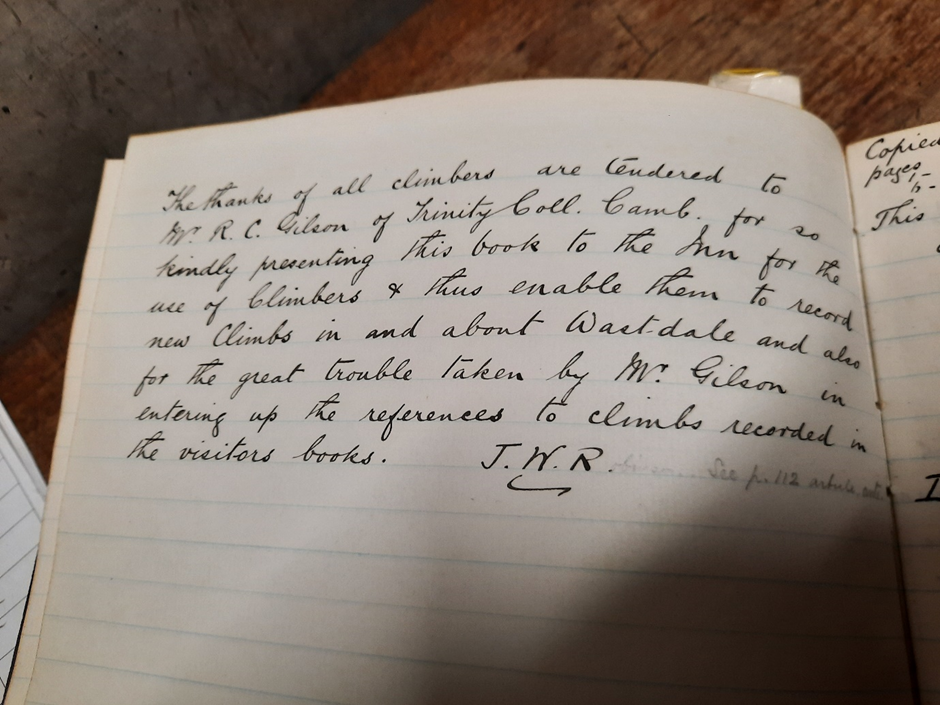 The thanks of all climbers are tendered to
Mr. R. C. Gilson of Trinity Coll. Camb. for so
kindly presenting this book to the Inn for the
use of Climbers & thus enable them to record
new Climbs in and about Wastdale and also
for the great trouble taken by Mr. Gilson in
entering up the references to climbs recorded in
the visitors books.
J. W. R. See p. 112
Copied
pages
This